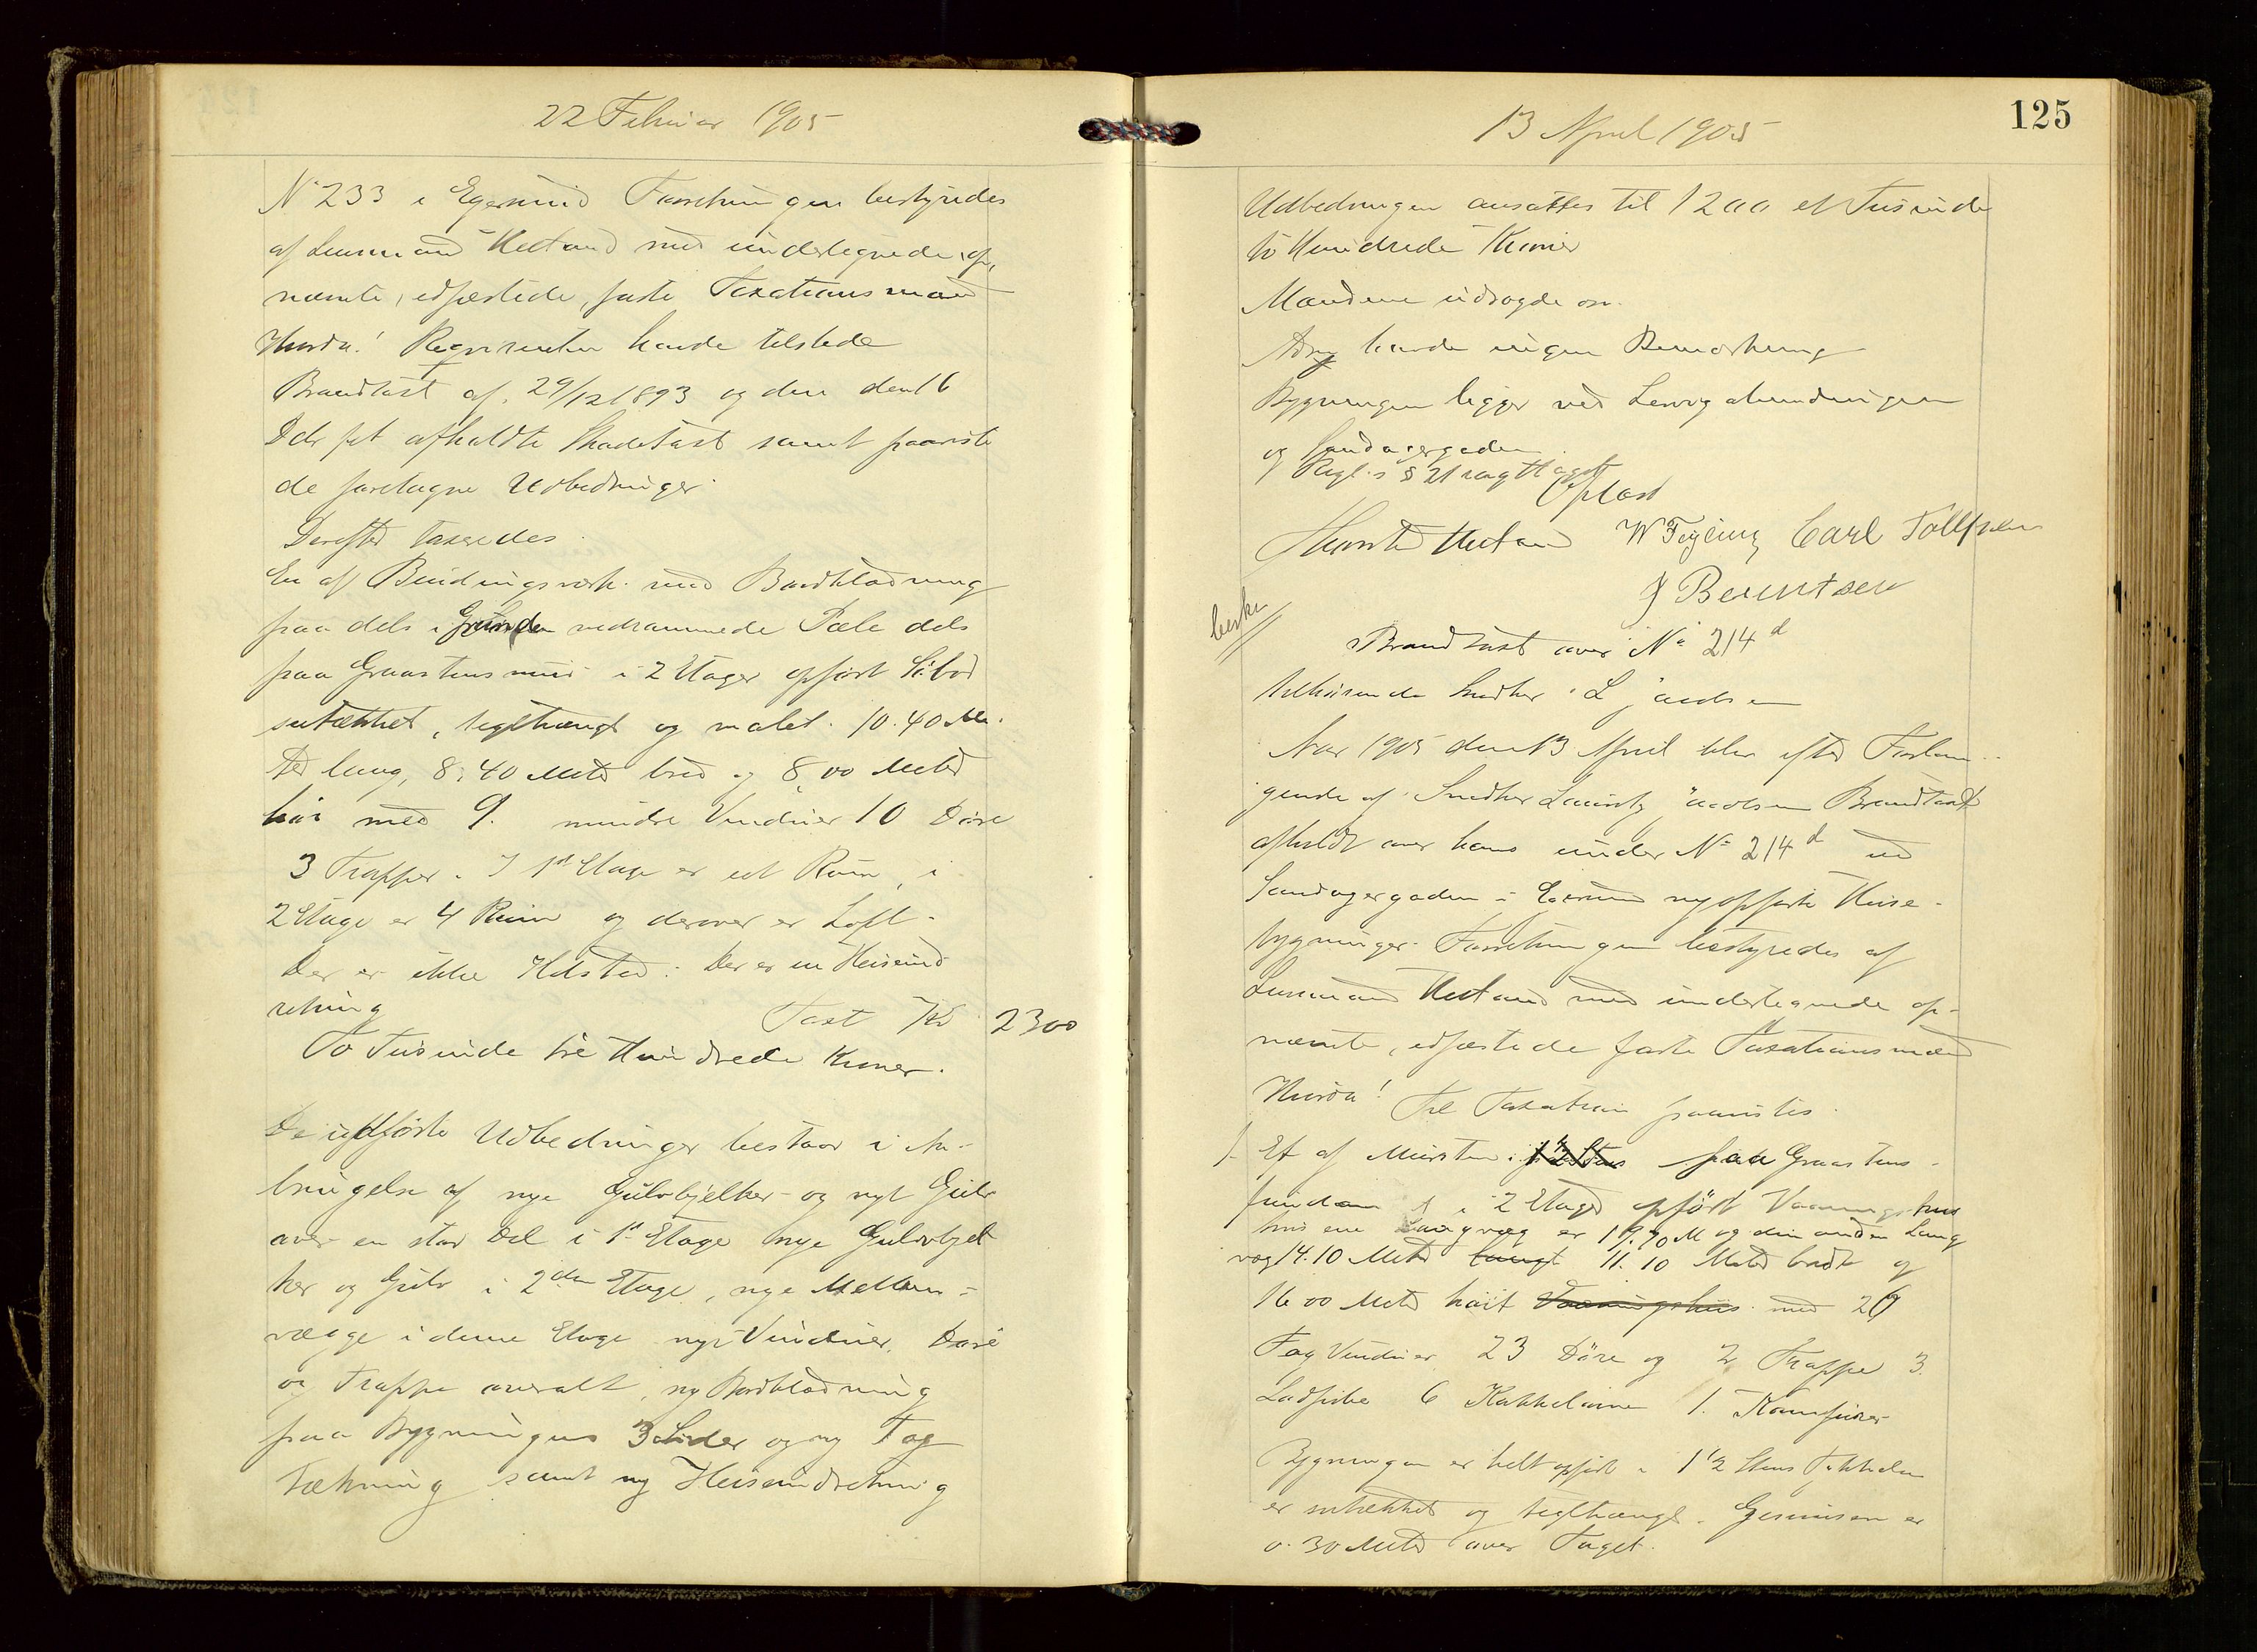 22 Februar 1905
No 233 i Egersund Forretningen bestyredes
af Lensmand Hetland med undertegnede, op,
nævnte, edfæstede, faste Taxationsmænd
Hvorda! Reqvirenten havde tilstede
Brandtaxt af 29/12 1893 og den den 16
Ds. afholdte Skadetaxt samt paaviste
de foretagne Udbedninger.
Derefter taxeredes
En af Bindingsværk med Bordklædning
paa dels i Grunden nedrammede Pæle dels
paa Graastensmur i 2 Etager opført Söbod
sutækket, teglhængt og malet. 10.40 Me
ter lang, 8,40 Meter bred og 8,00 Meter
höi med 9. mindre Vinduer 10 Döre
3 Trapper. I 1ste Etage er et Rum, i
2 Etage er 4 Rum og derover er Loft.
Der er ikke Ildsted. Der er en Heiseind
retning
Taxt Kr 2300
To Tusinde tre Hundrede Kroner.
De udförte Udbedninger bestaar i An-
bringelse af nye Gulvbjelker og nyt Gulv
over en stor Del i 1ste Etage nye Gulvbjel
ker og Gulv i 2den Etage, nye Mellem-
vægge i denne Etage nye Vinduer, Döre
og Trapper overalt, ny Bordklædning
paa Bygningens 3 Sider og ny Tag
tækning samt ny Heiseindretning
125
13 April 1905
Udbedningen ansattes til 1200 et Tusinde
to Hundrede Kroner
Mændene udsagde osv.
Adsg havde ingen Bemærkning
Bygningen ligger ved Lervigalmendningen
og Sandagergaden.
Regl.s § 21 iagttaget
Oplæst
Hetland W Feyling Carl Tollefsen
J Berentsen
Brandtaxt over No 214d
tilhörende Snedker L Jacobsen
Aar 1905 den 13 April blev efter Forlan-
gende af Snedker Lauritz Jacobsen Brandtaxt
afholdt over hans under No 214d ved
Sandagergaden i Egersund nyopförte Huse-
bygninger. Forretningen bestyredes af
Lensmand Hetland med undertegnede op-
nævnte, edfæstede faste Taxationsmænd
Hvorda! Til Taxation paavistes.
1. Et af Mursten i 1½ Stens paa Graastens-
fundament i 2 Etager opfört Vaaningshus
hvis ene Langvæg er 19.70 M og den anden Lang
væg 14.10 Meter langt 11.10 Meter bredt og
16 00 Meter höit Vaaningshus med 26
Fag Vinduer 23 Döre og 2 Trapper 3
Ladpiber 6 Kakkelovne 1. Komfurer
Bygningen er helt opfört i 1½ Stens Tykkelse
er sutækket og teglhængt. Gesimsen er
0.30 Meter over Taget.